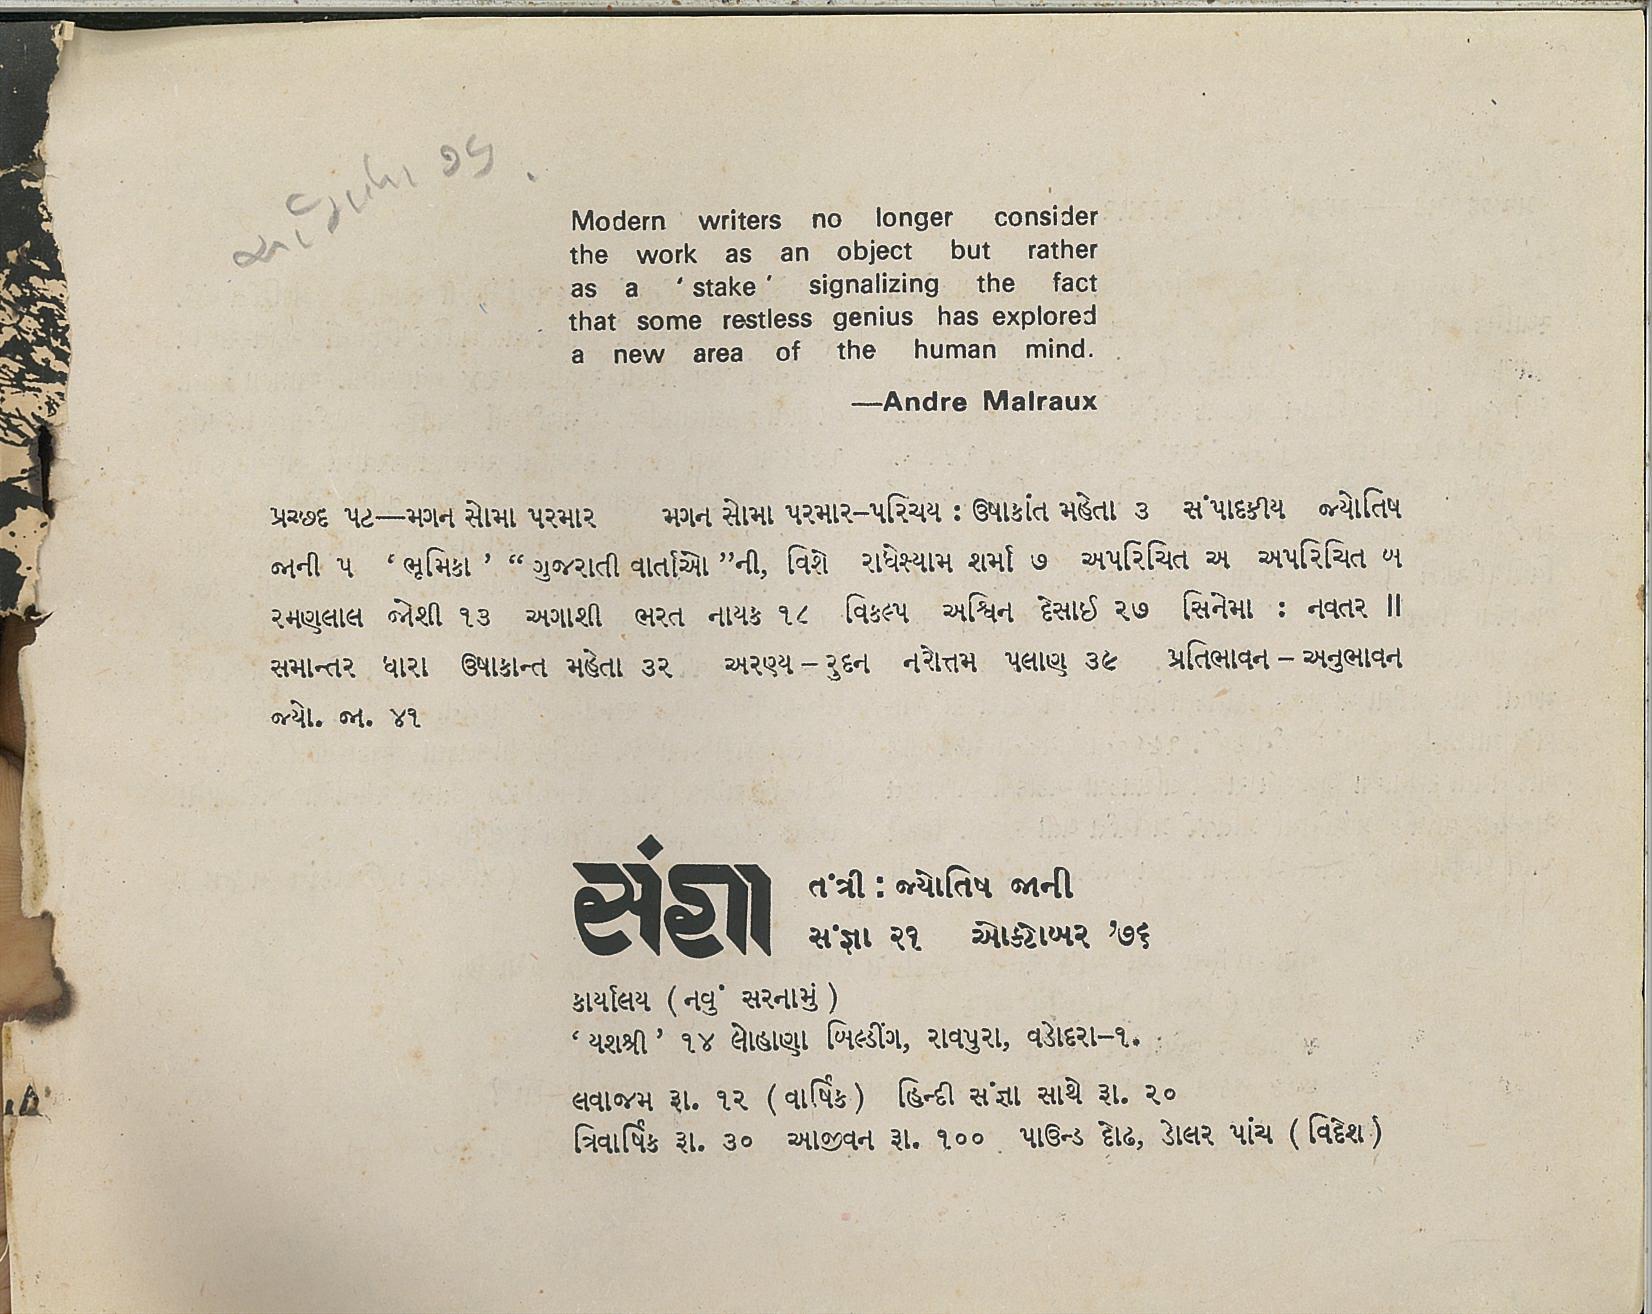 Modern writers no longer consider
the work as an object but rather
as a ‘ stake ’ signalizing the fact
that some restless genius has explored
a new area of the human mind.
—Andre Malraux
પ્રચ્છદ પટ—મગન સોમા પરમાર મગન સોમા પરમાર–પરિચય : ઉષાકાંત મહેતા ૩ સંપાદકીય જ્યોતિષ
જાની ૫ ‘ ભૂમિકા ’ “ ગુજરાતી વાર્તાઓ ”ની, વિશે રાધેસ્યામ શર્મા ૭ અપરિચિત અ અપરિચિત બ
રમણલાલ જોશી ૧૩ અગાશી ભરત નાયક ૧૮ વિકલ્પ અશ્વિન દેસાઈ ૨૭ સિનેમા : નવતર ॥
સમાન્તર ધારા ઉષાકાન્ત મહેતા ૩૨ અરણ્ય – રુદન નરોત્તમ પલાણ ૩૯ પ્રતિભાવન – અનુભાવન
જ્યો. જા. ૪૧
સંજ્ઞા
તંત્રી : જ્યોતિષ જાની
સંજ્ઞા ૨૧ ઓક્ટોબર ’૭૬
કાર્યાલય ( નવું સરનામું )
‘ યશશ્રી ’ ૧૪ લોહાણા બિલ્ડીંગ, રાવપુરા, વડોદરા–૧.
લવાજમ રૂા. ૧૨ ( વાર્ષિક ) હિન્દી સંજ્ઞા સાથે રૂા. ૨૦
ત્રિવાર્ષિક રૂા. ૩૦ આજીવન રૂા. ૧૦૦ પાઉન્ડ દોઢ, ડોલર પાંચ ( વિદેશ )